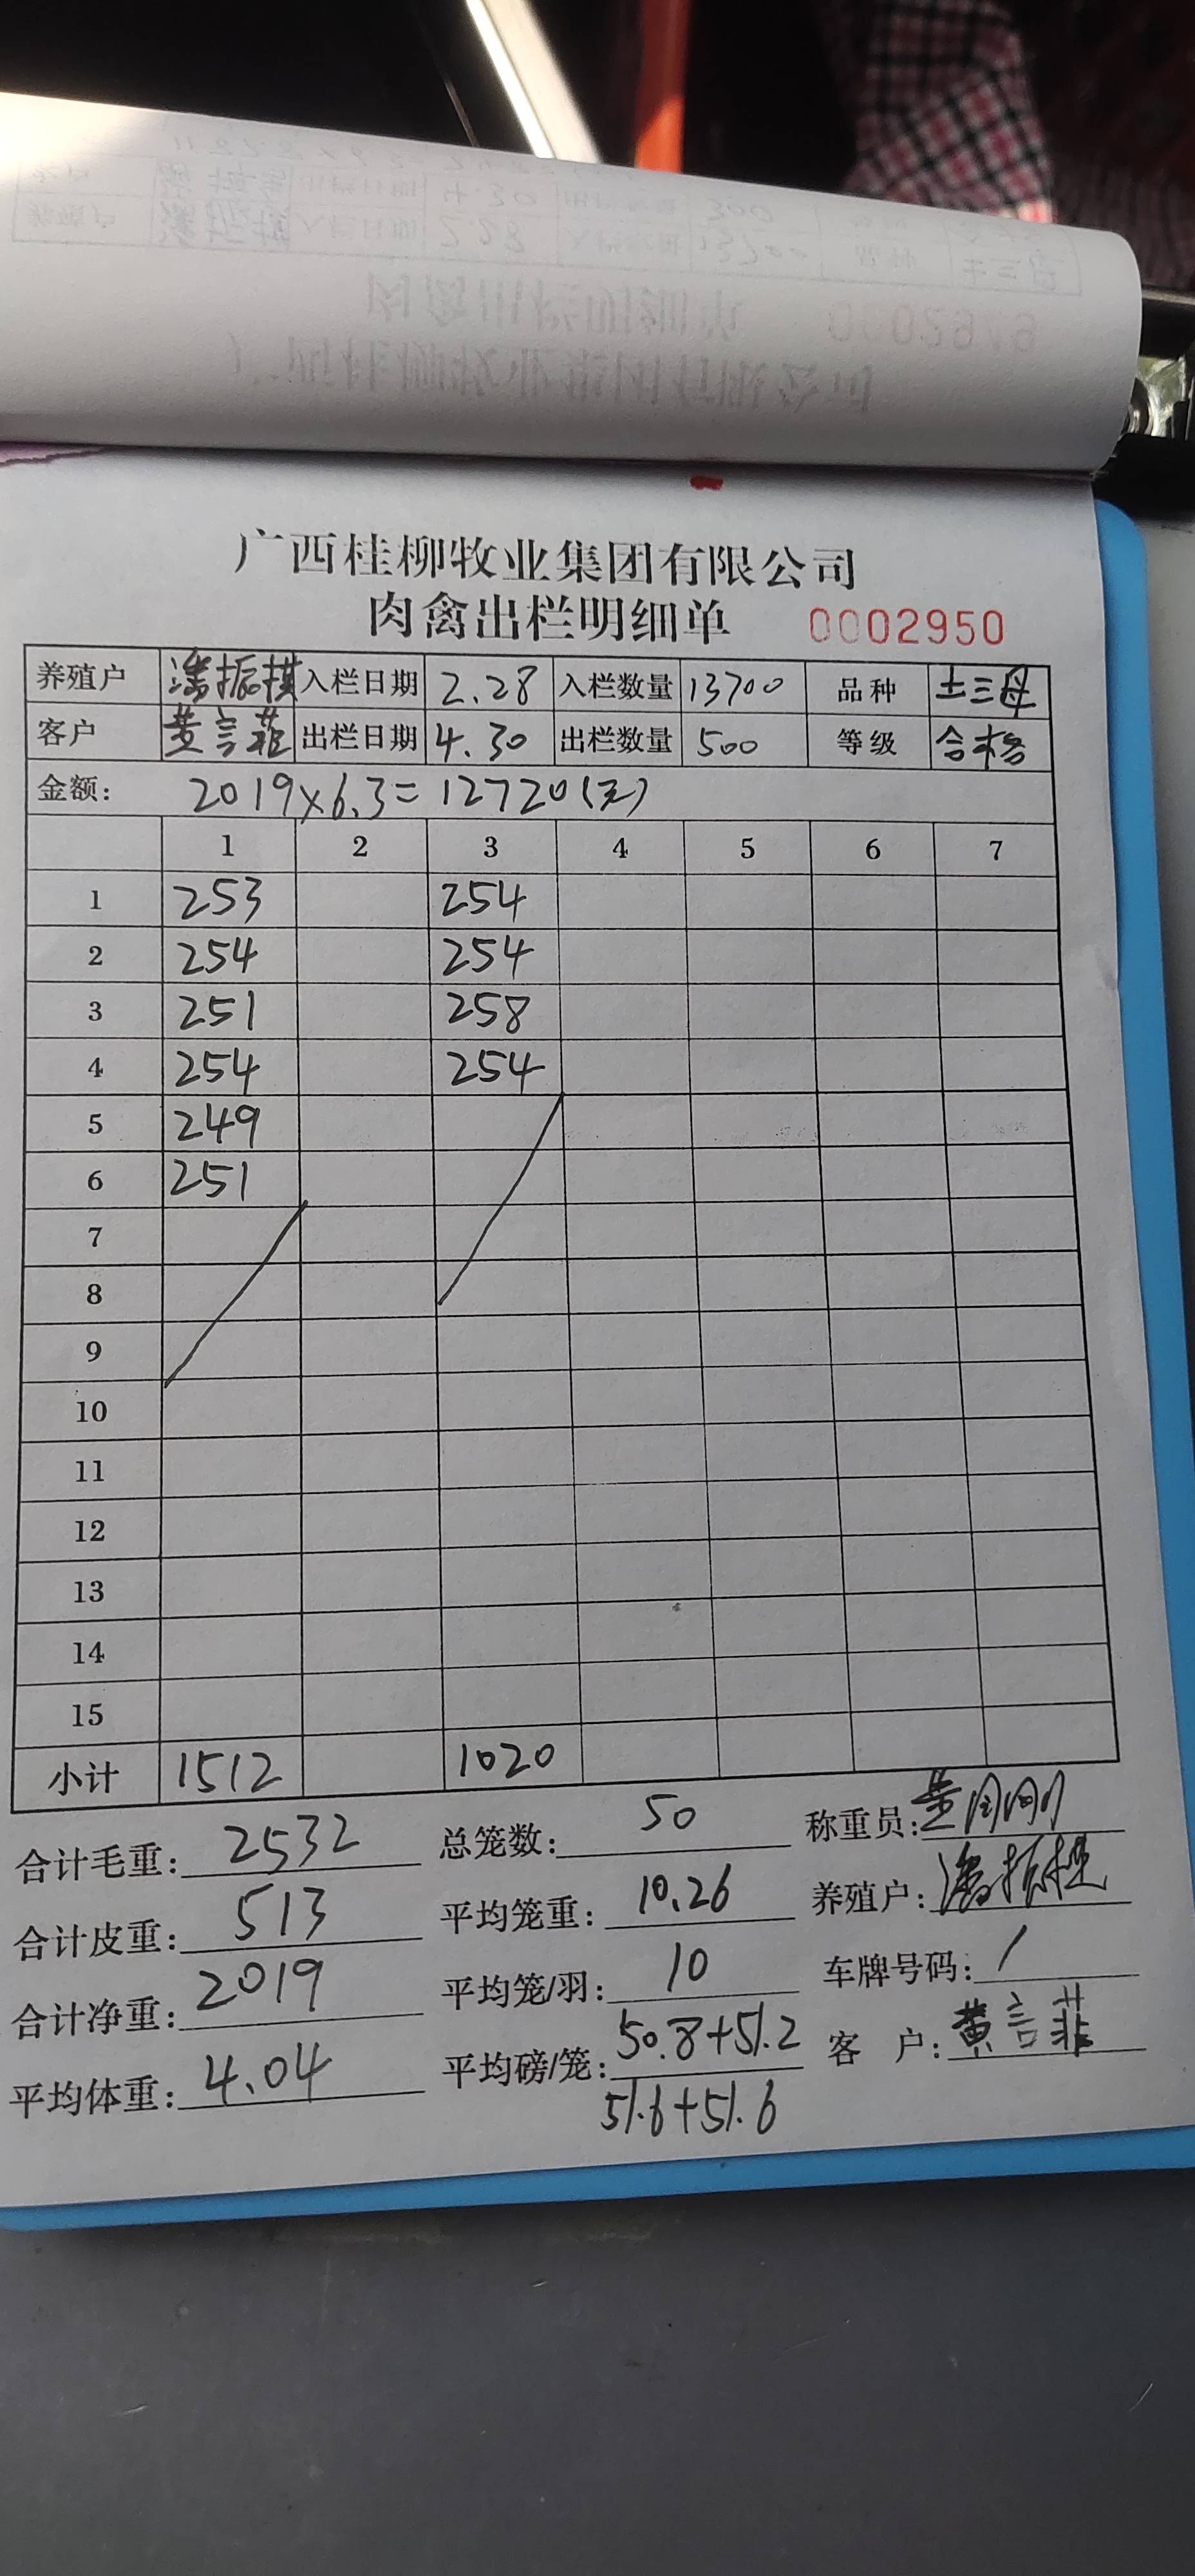 广西桂柳牧业集团有限公司
肉禽出栏明细单 0002950
养殖户 潘振棋 入栏日期 2.28 入栏数量 13700 品种 土三母
客户 黄言菲 出栏日期 4.30 出栏数量 500 等级 合格
金额: 2019×6.3=12720(元)
1 2 3 4 5 6 7
1 253 254
2 254 254
3 251 258
4 254 254
5 249
6 251
7
8
9
10
11
12
13
14
15
小计 1512 1020
合计毛重: 2532 总笼数: 50 称重员:
合计皮重: 513 平均笼重: 10.26 养殖户:
合计净重: 2019 平均笼/羽: 10 车牌号码: /
平均体重: 4.04 平均磅/笼: 50.8+51.2 客 户: 黄言菲
51.6+51.6